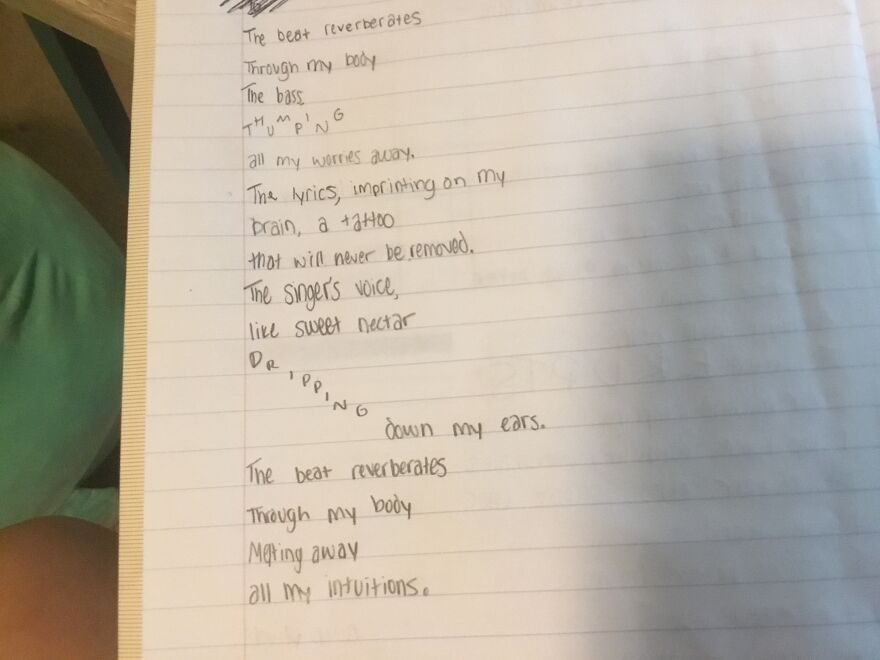 The beat reverberates
Through my body
The bass
THUMPING
all my worries away.
The lyrics, imprinting on my
brain, a tattoo
that will never be removed.
The singer's voice,
like sweet nectar
DRIPPING
down my ears.
The beat reverberates
Through my body
Melting away
all my intuitions.